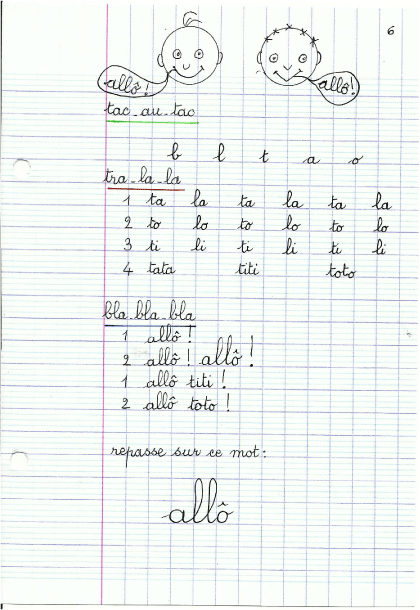 6
allô! allô!
tac_au_tac
b l t a o
tra_la_la
1 ta la ta la ta la
2 to lo to lo to lo
3 ti li ti li ti li
4 tata titi toto
bla_bla_bla
1 allô !
2 allô ! allô !
1 allô titi !
2 allô toto !
repasse sur ce mot :
allô